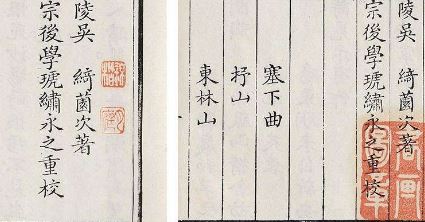 陵吳　綺薗次著
宗後學琥繡永之重校
陵吳　綺薗次著
宗後學琥繡永之重校
塞下曲
杼山
東林山